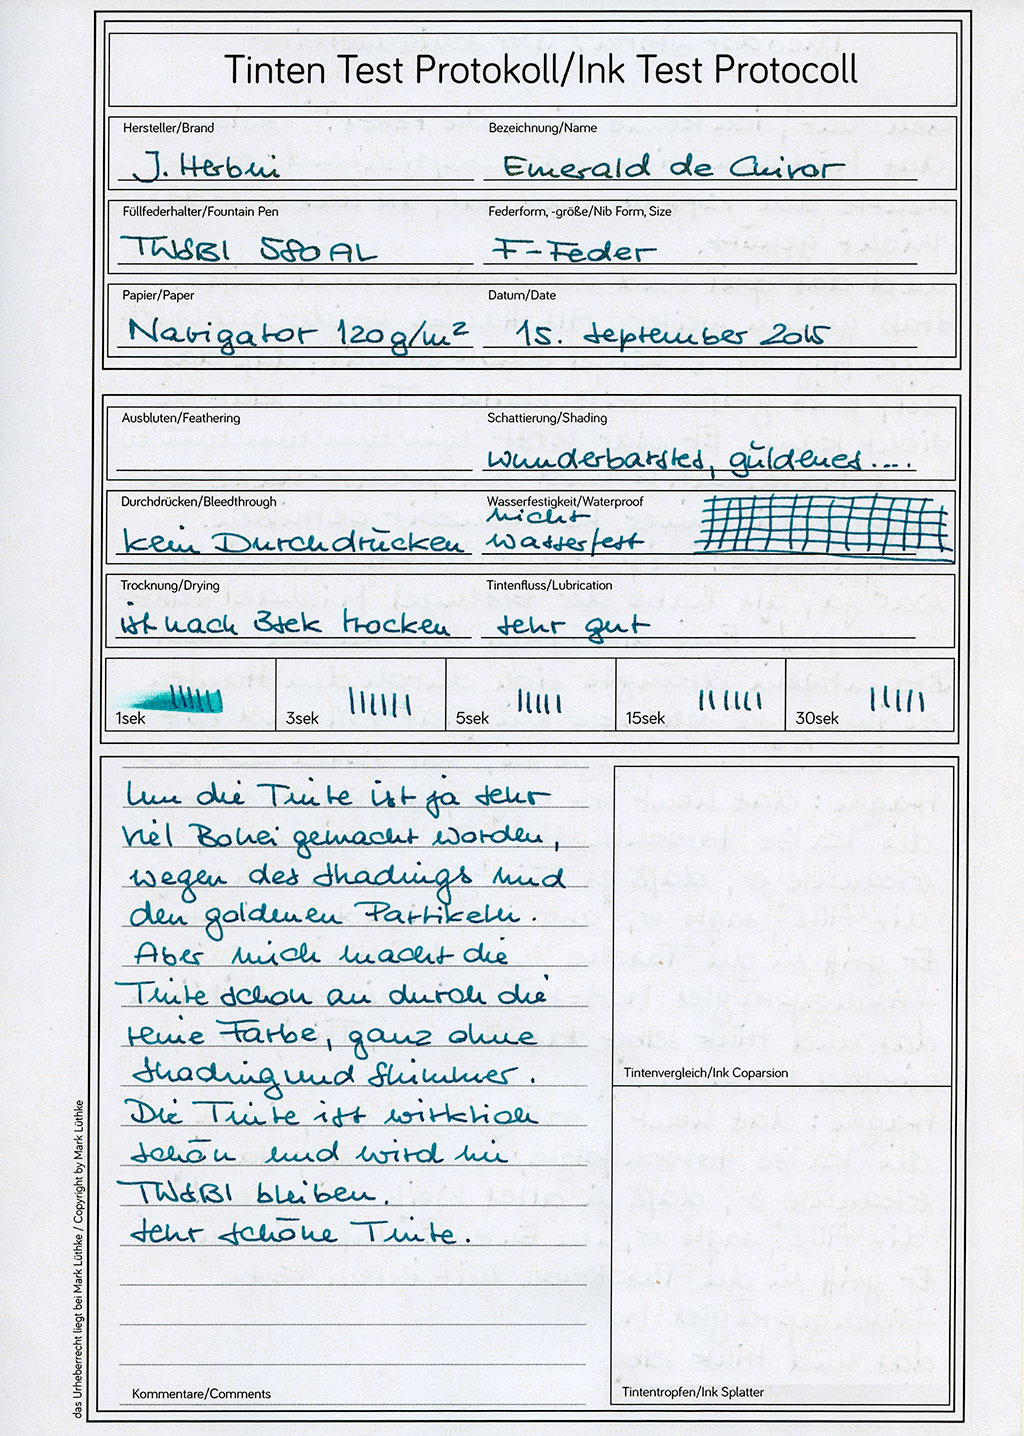 Tinten Test Protokoll/Ink Test Protocoll
Hersteller/Brand
J. Herbin
Bezeichnung/Name
Emerald de Chivor
Füllfederhalter/Fountain Pen
TWSBI 580AL
Federform, -größe/Nib Form, Size
F-Feder
Papier/Paper
Navigator 120g/m²
Datum/Date
15. September 2015
Ausbluten/Feathering
Schattierung/Shading
wunderbarstes, güldenes....
Durchdrücken/Bleedthrough
kein Durchdrücken
Wasserfestigkeit/Waterproof
nicht
wasserfest
Trocknung/Drying
ist nach 3sek trocken
Tintenfluss/Lubrication
sehr gut
1sek
3sek
5sek
15sek
30sek
Um die Tinte ist ja sehr
viel Bohei gemacht worden,
wegen des Shadings und
den goldenen Partikeln.
Aber mich macht die
Tinte schon an durch die
reine Farbe, ganz ohne
Shading und Shimmer.
Die Tinte ist wirklich
schön und wird im
TWSBI bleiben.
Sehr schöne Tinte.
Kommentare/Comments
Tintenvergleich/Ink Coparsion
Tintentropfen/Ink Splatter
das Urheberrecht liegt bei Mark Lüthke / Copyright by Mark Lüthke